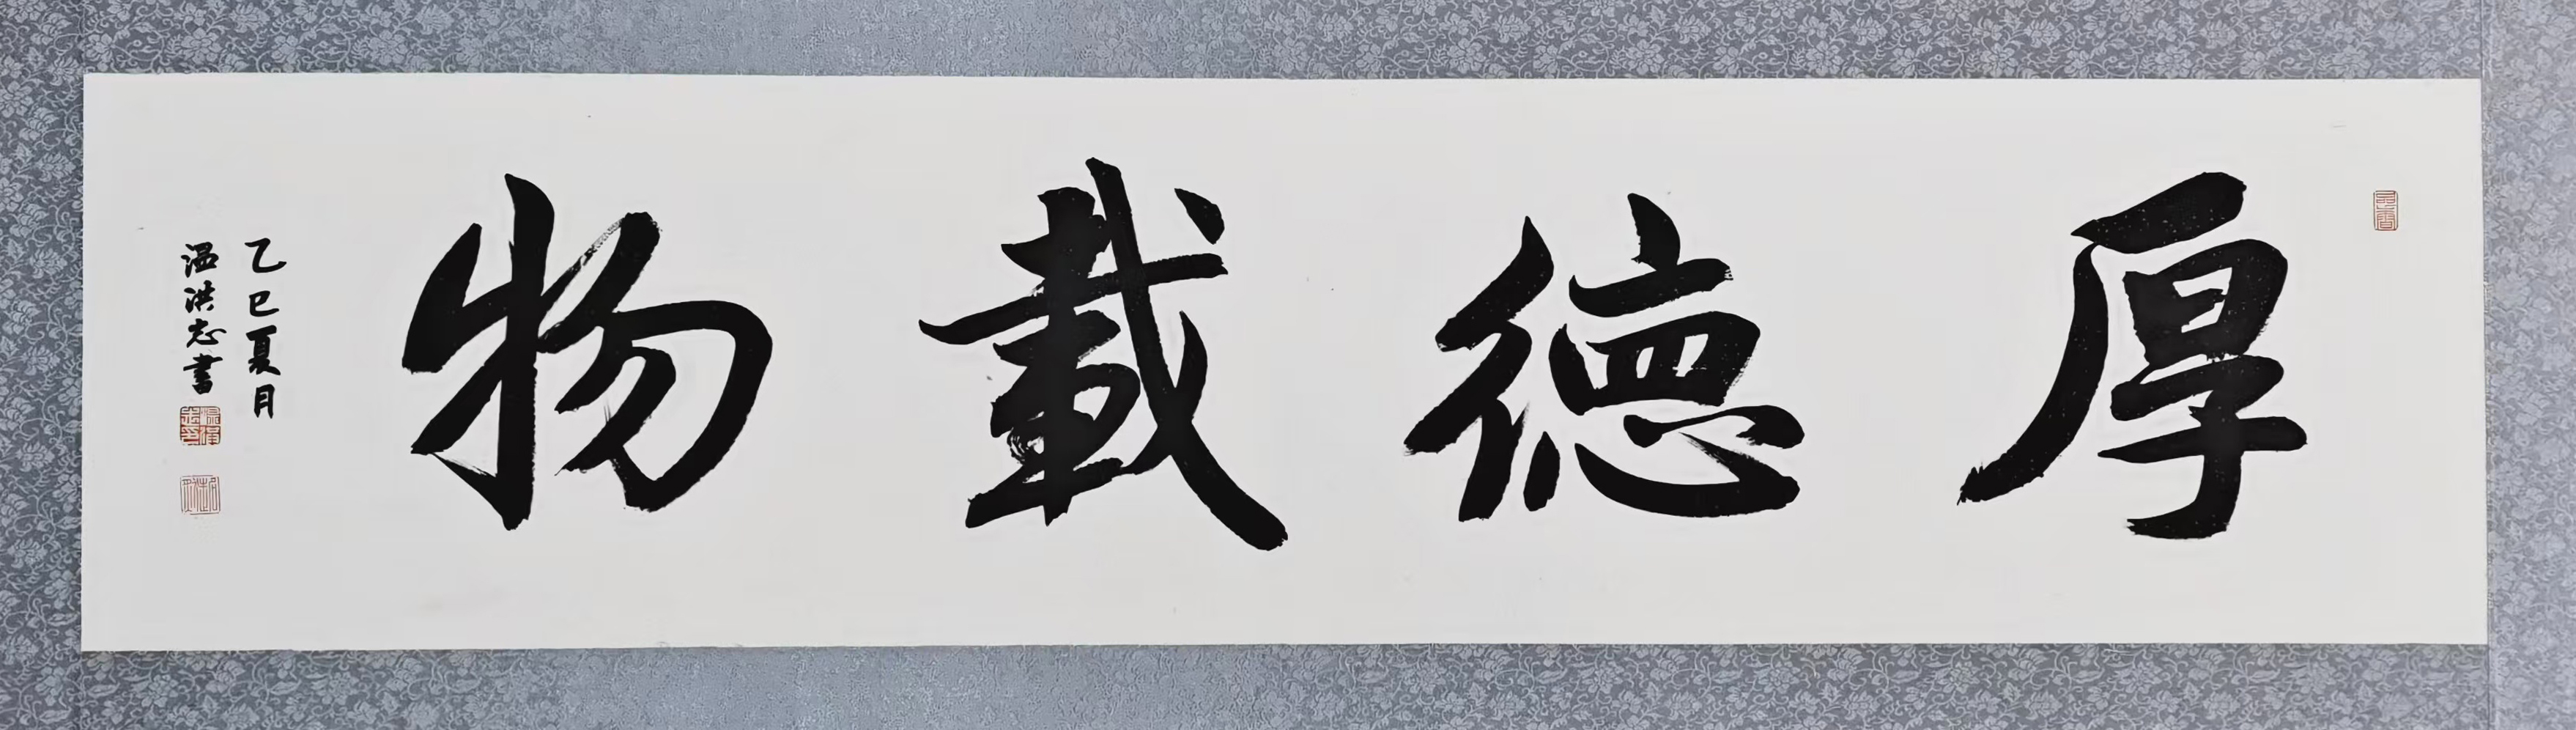 厚德載物
乙巳夏月
温洪志書